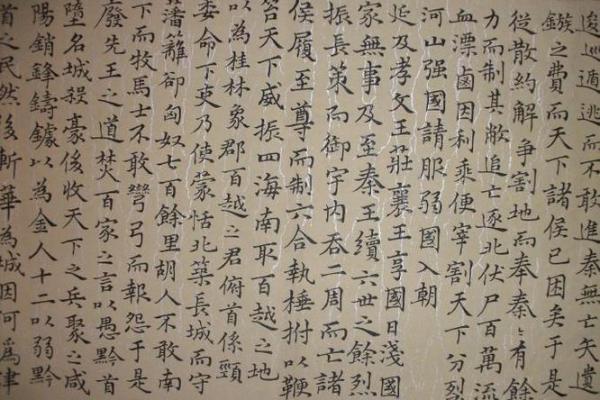 逡巡遁逃而不敢進秦無亡矢遺
鏃之費而天下諸侯已困矣于是
從散約解爭割地而奉秦〻有餘
力而制其敝追亡逐北伏尸百萬流
血漂鹵因利乘便宰割天下分裂
河山强國請服弱國入朝
延及孝文王莊襄王享國日淺國
家無事及至秦王續六世之餘烈
振長策而御宇內吞二周而亡諸
侯履至尊而制六合執棰拊以鞭
笞天下威振四海南取百越之地
以為桂林象郡百越之君俯首係頸
委命下吏乃使蒙恬北築長城而守
藩籬卻匈奴七百餘里胡人不敢南
下而牧馬士不敢彎弓而報怨于是
廢先王之道焚百家之言以愚黔首
墮名城殺豪俊收天下之兵聚之咸
陽銷鋒鑄鐻以為金人十二以弱黔
首之民然後斬華為城因何為津